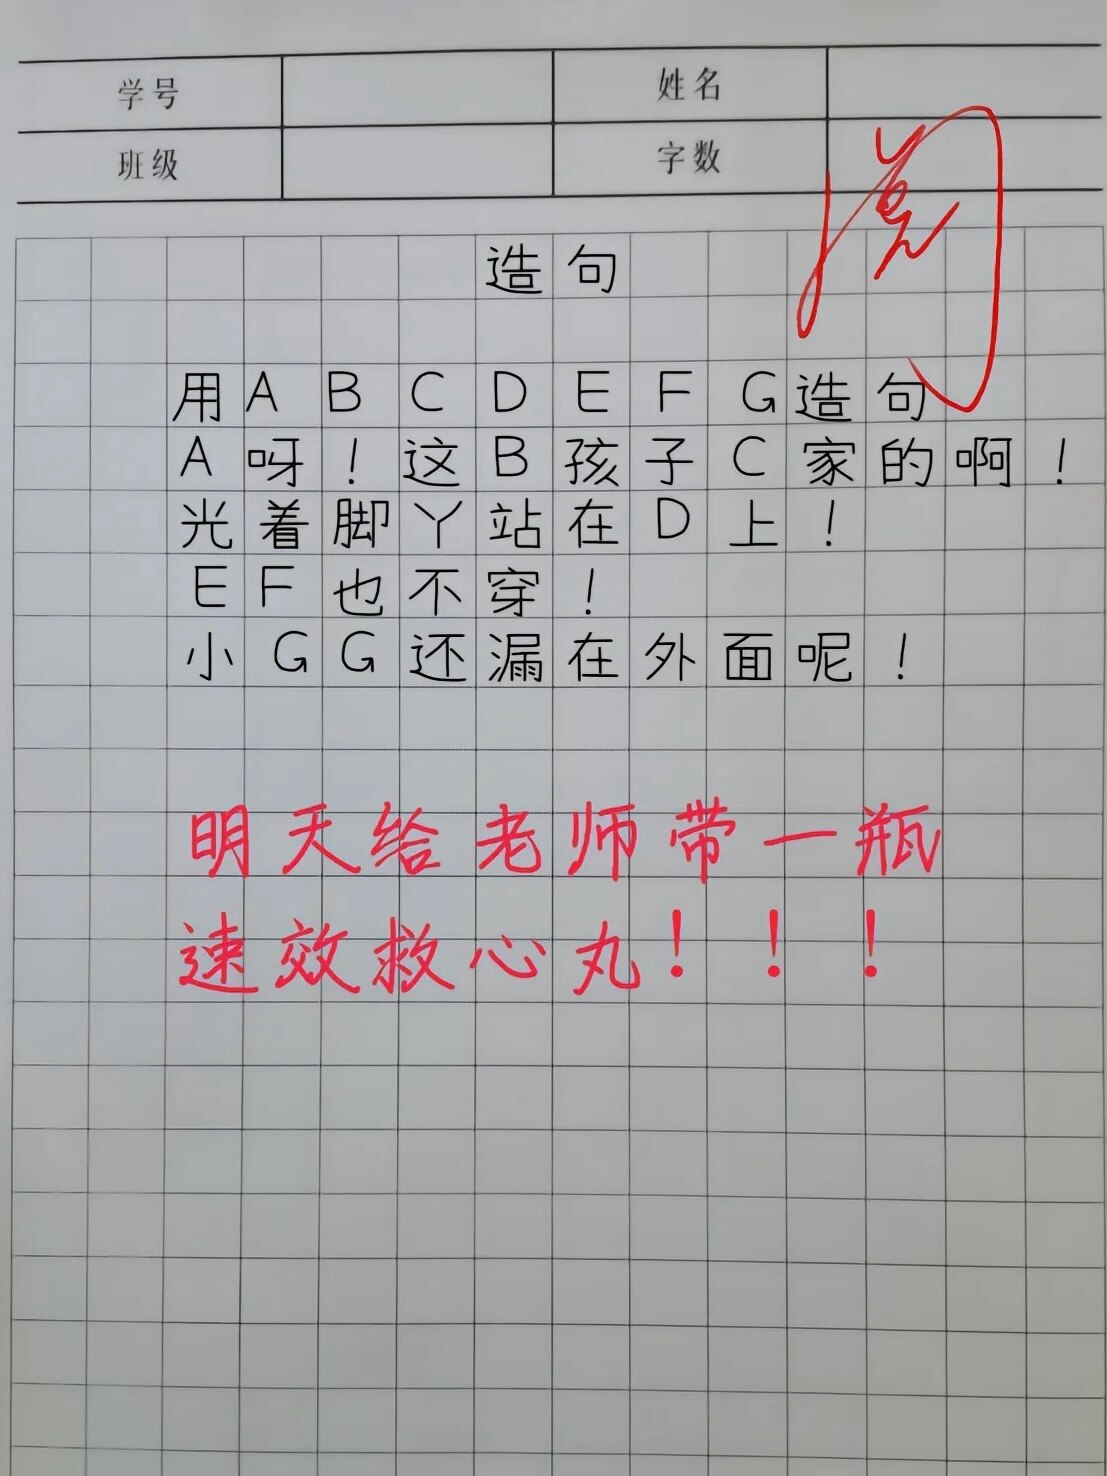 学号 姓名
班级 字数
阅
造句
用ABCDEFG造句
A呀！这B孩子C家的啊！
光着脚丫站在D上！
EF也不穿！
小GG还漏在外面呢！
明天给老师带一瓶
速效救心丸！！！